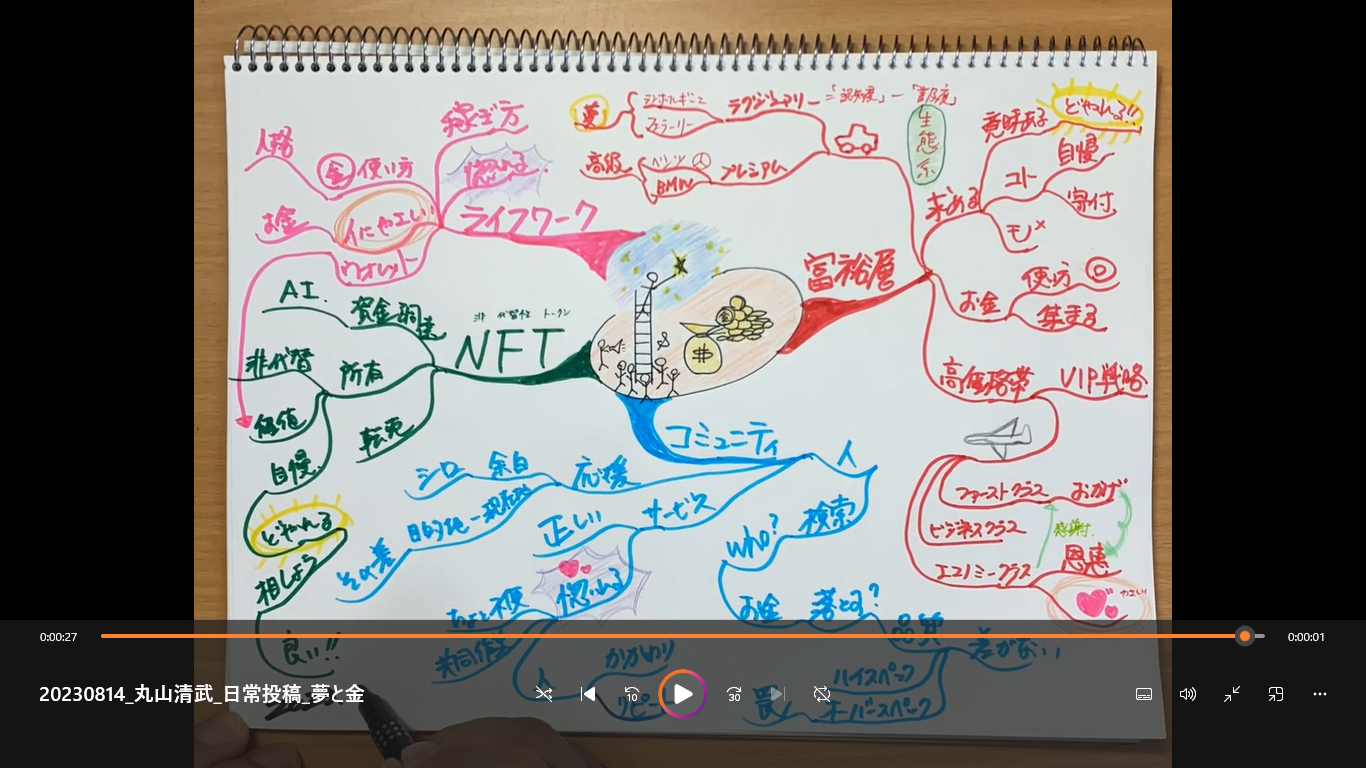 稼ぎ方
惚れる
ライフワーク
人格
金 使い方
お金
人にやさしい
ウォレット
夢
ランボルギーニ
フェラーリ
ラグジュアリー=「認知度」-「普及度」
高級
ベンツ
BMW
プレミアム
生態系
富裕層
求める
意味ある
どやれる!!
コト
自慢
寄付
モノ×
お金
使い方◎
集まる
高価格帯
VIP戦略
ファーストクラス
おかげ
ビジネスクラス
エコノミークラス
恩恵
NFT
非代替性トークン
資金調達
AI.
所有
非代替
価値
自慢
どやれる
良い!!
転売
コミュニティ
応援
余白
シロ
目的地-現在地
その差
サービス
正しい
惚れる
ちょっと不便
人
かかわり
人
検索
who?
お金
落とす?
差がない
ハイスペック
オーバースペック
罠
0:00:27
0:00:01
20230814_丸山清武_日常投稿_夢と金
10
30